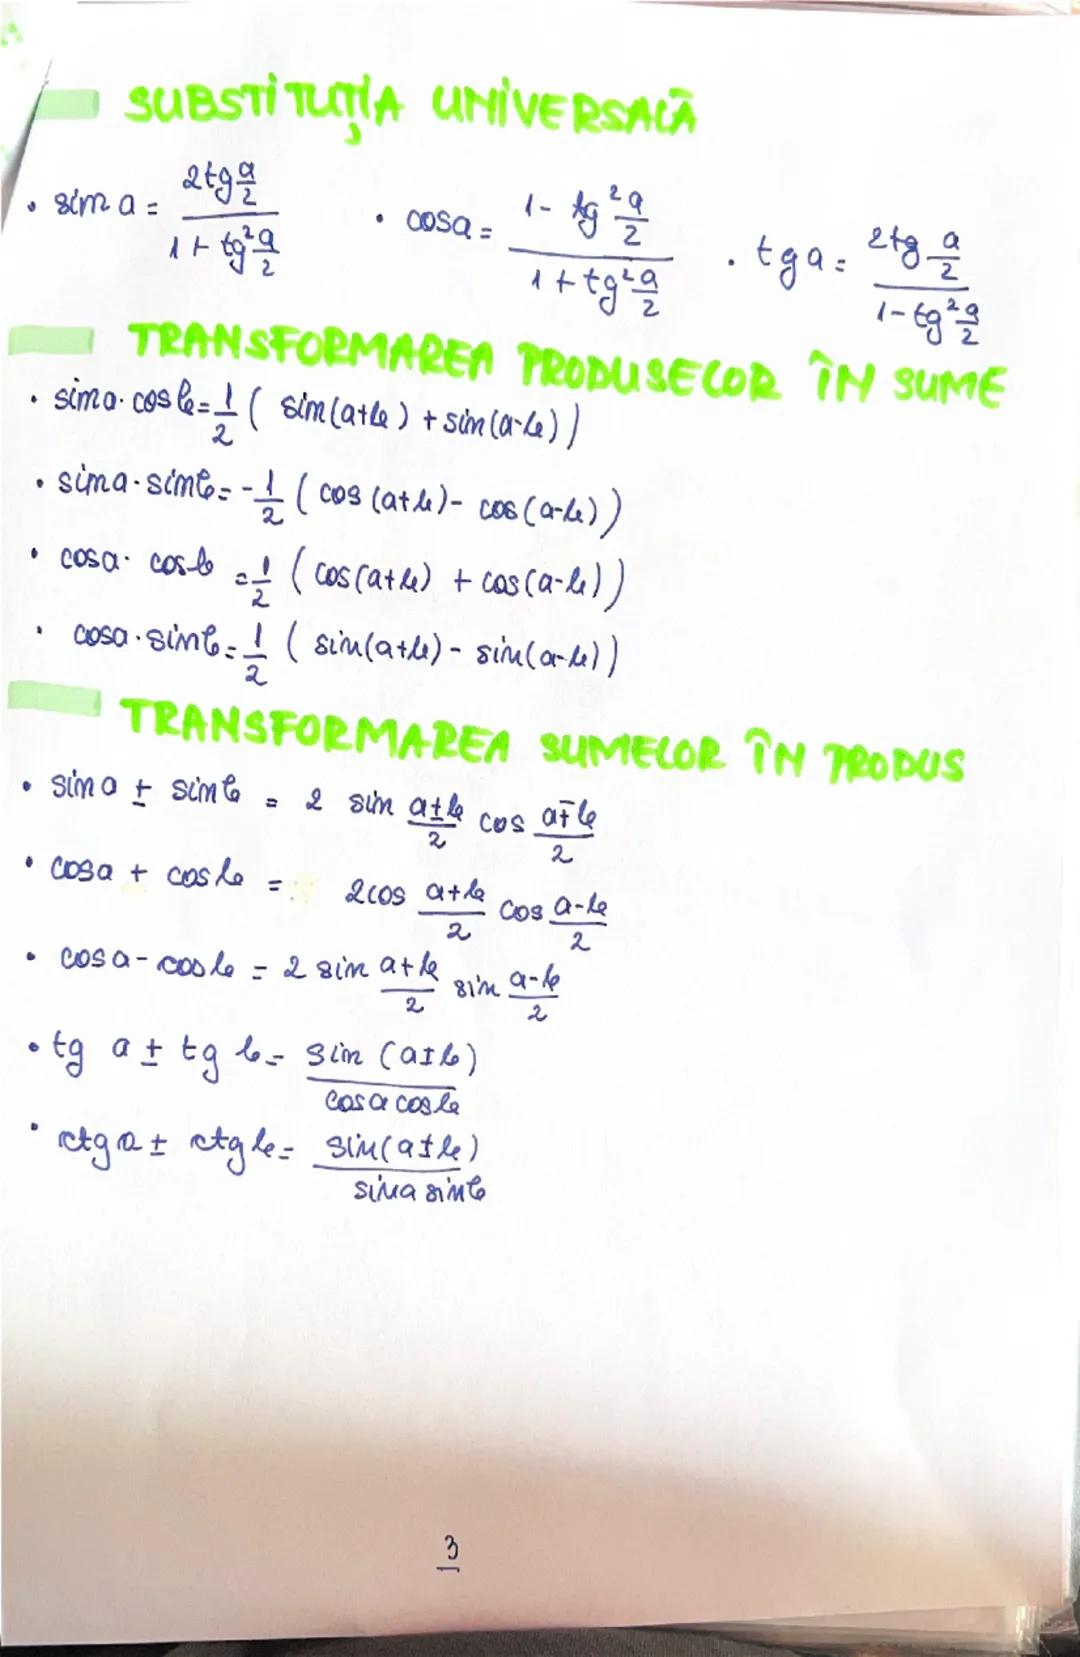 SUBSTITUȚIA UNIVERSALĂ
• sin a = 2tg a/2 / 1 + tg² a/2 • cos a = 1 - tg² a/2 / 1 + tg² a/2 • tg a = 2tg a/2 / 1 - tg² a/2
TRANSFORMAREA PRODUSELOR ÎN SUME
• sin a · cos b = 1/2 ( sin(a+b) + sin(a-b))
• sin a · sin b = -1/2 ( cos(a+b) - cos(a-b))
• cos a · cos b = 1/2 ( cos(a+b) + cos(a-b))
• cos a · sin b = 1/2 ( sin(a+b) - sin(a-b))
TRANSFORMAREA SUMELOR ÎN PRODUS
• sin a ± sin b = 2 sin a±b/2 cos a∓b/2
• cos a + cos b = 2cos a+b/2 cos a-b/2
• cos a - cos b = 2 sin a+b/2 sin a-b/2
• tg a ± tg b = sin (a±b) / cos a cos b
• ctg a ± ctg b = sin(a±b) / sin a sin b
3